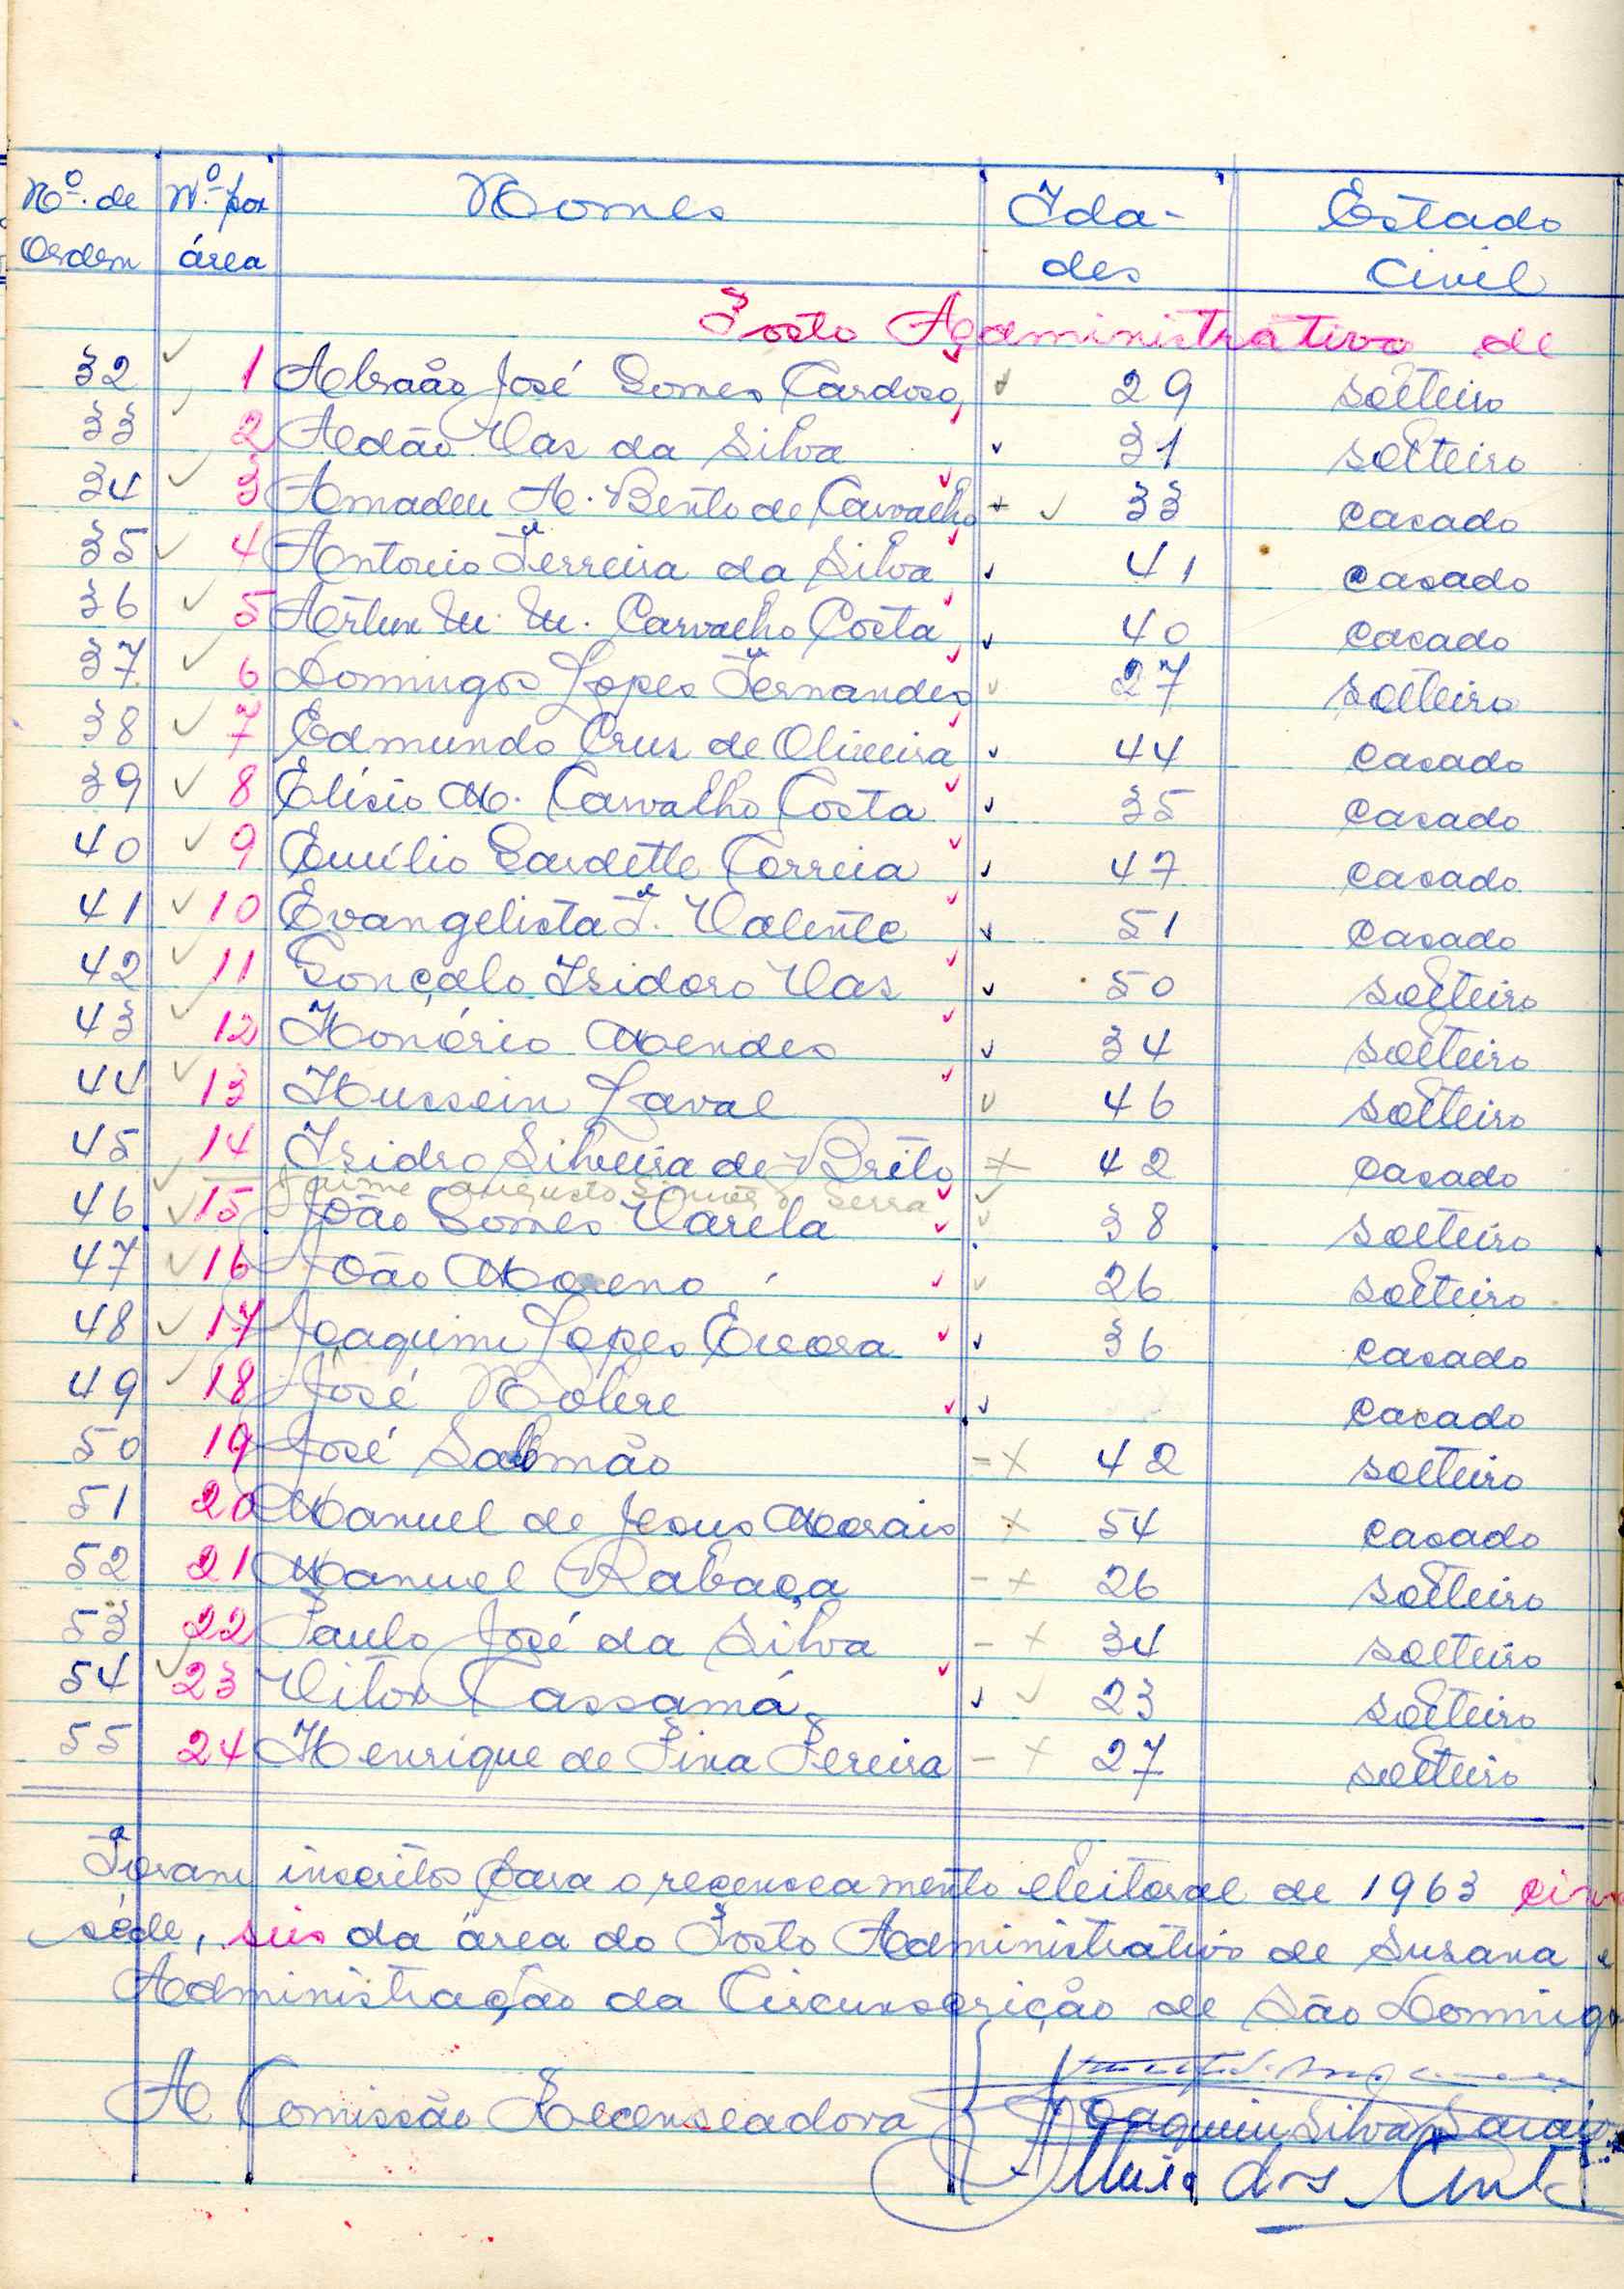 Nº. de Nº. por Nomes Ida- Estado
Ordem área des Civil
Posto Administrativo de
32 1 Abraão José Gomes Cardoso 29 solteiro
33 2 Adão Vas da Silva 31 solteiro
34 3 Amadeu A. Bento de Carvalho 33 casado
35 4 Antonio Ferreira da Silva 41 casado
36 5 Artur M. M. Carvalho Costa 40 casado
37 6 Domingos Lopes Fernandes 27 solteiro
38 7 Edmundo Cruz de Oliveira 44 casado
39 8 Elísio M. Carvalho Costa 35 casado
40 9 Emílio Gardette Correia 47 casado
41 10 Evangelista F. Valente 51 casado
42 11 Gonçalo Isidoro Vas 50 solteiro
43 12 Honório Mendes 34 solteiro
44 13 Hussein Laval 46 solteiro
45 14 Isidro Silveira de Brito 42 casado
Jaime Augusto Serra
46 15 João Gomes Varela 38 solteiro
47 16 João Moreno 26 solteiro
48 17 Joaquim Lopes Évora 36 casado
49 18 José casado
50 19 José Salomão 42 solteiro
51 20 Manuel de Jesus Morais 54 casado
52 21 Manuel Rabaça 26 solteiro
53 22 Paulo José da Silva 34 solteiro
54 23 Vitor Cassamá 23 solteiro
55 24 Henrique de Pina Pereira 27 solteiro
Foram inscritos para o recenseamento eleitoral de 1963
séde, seis da área do Posto Administrativo de Susana e
Administração da Circunscrição de São Domingo
A Comissão Recenseadora
Joaquim Silva